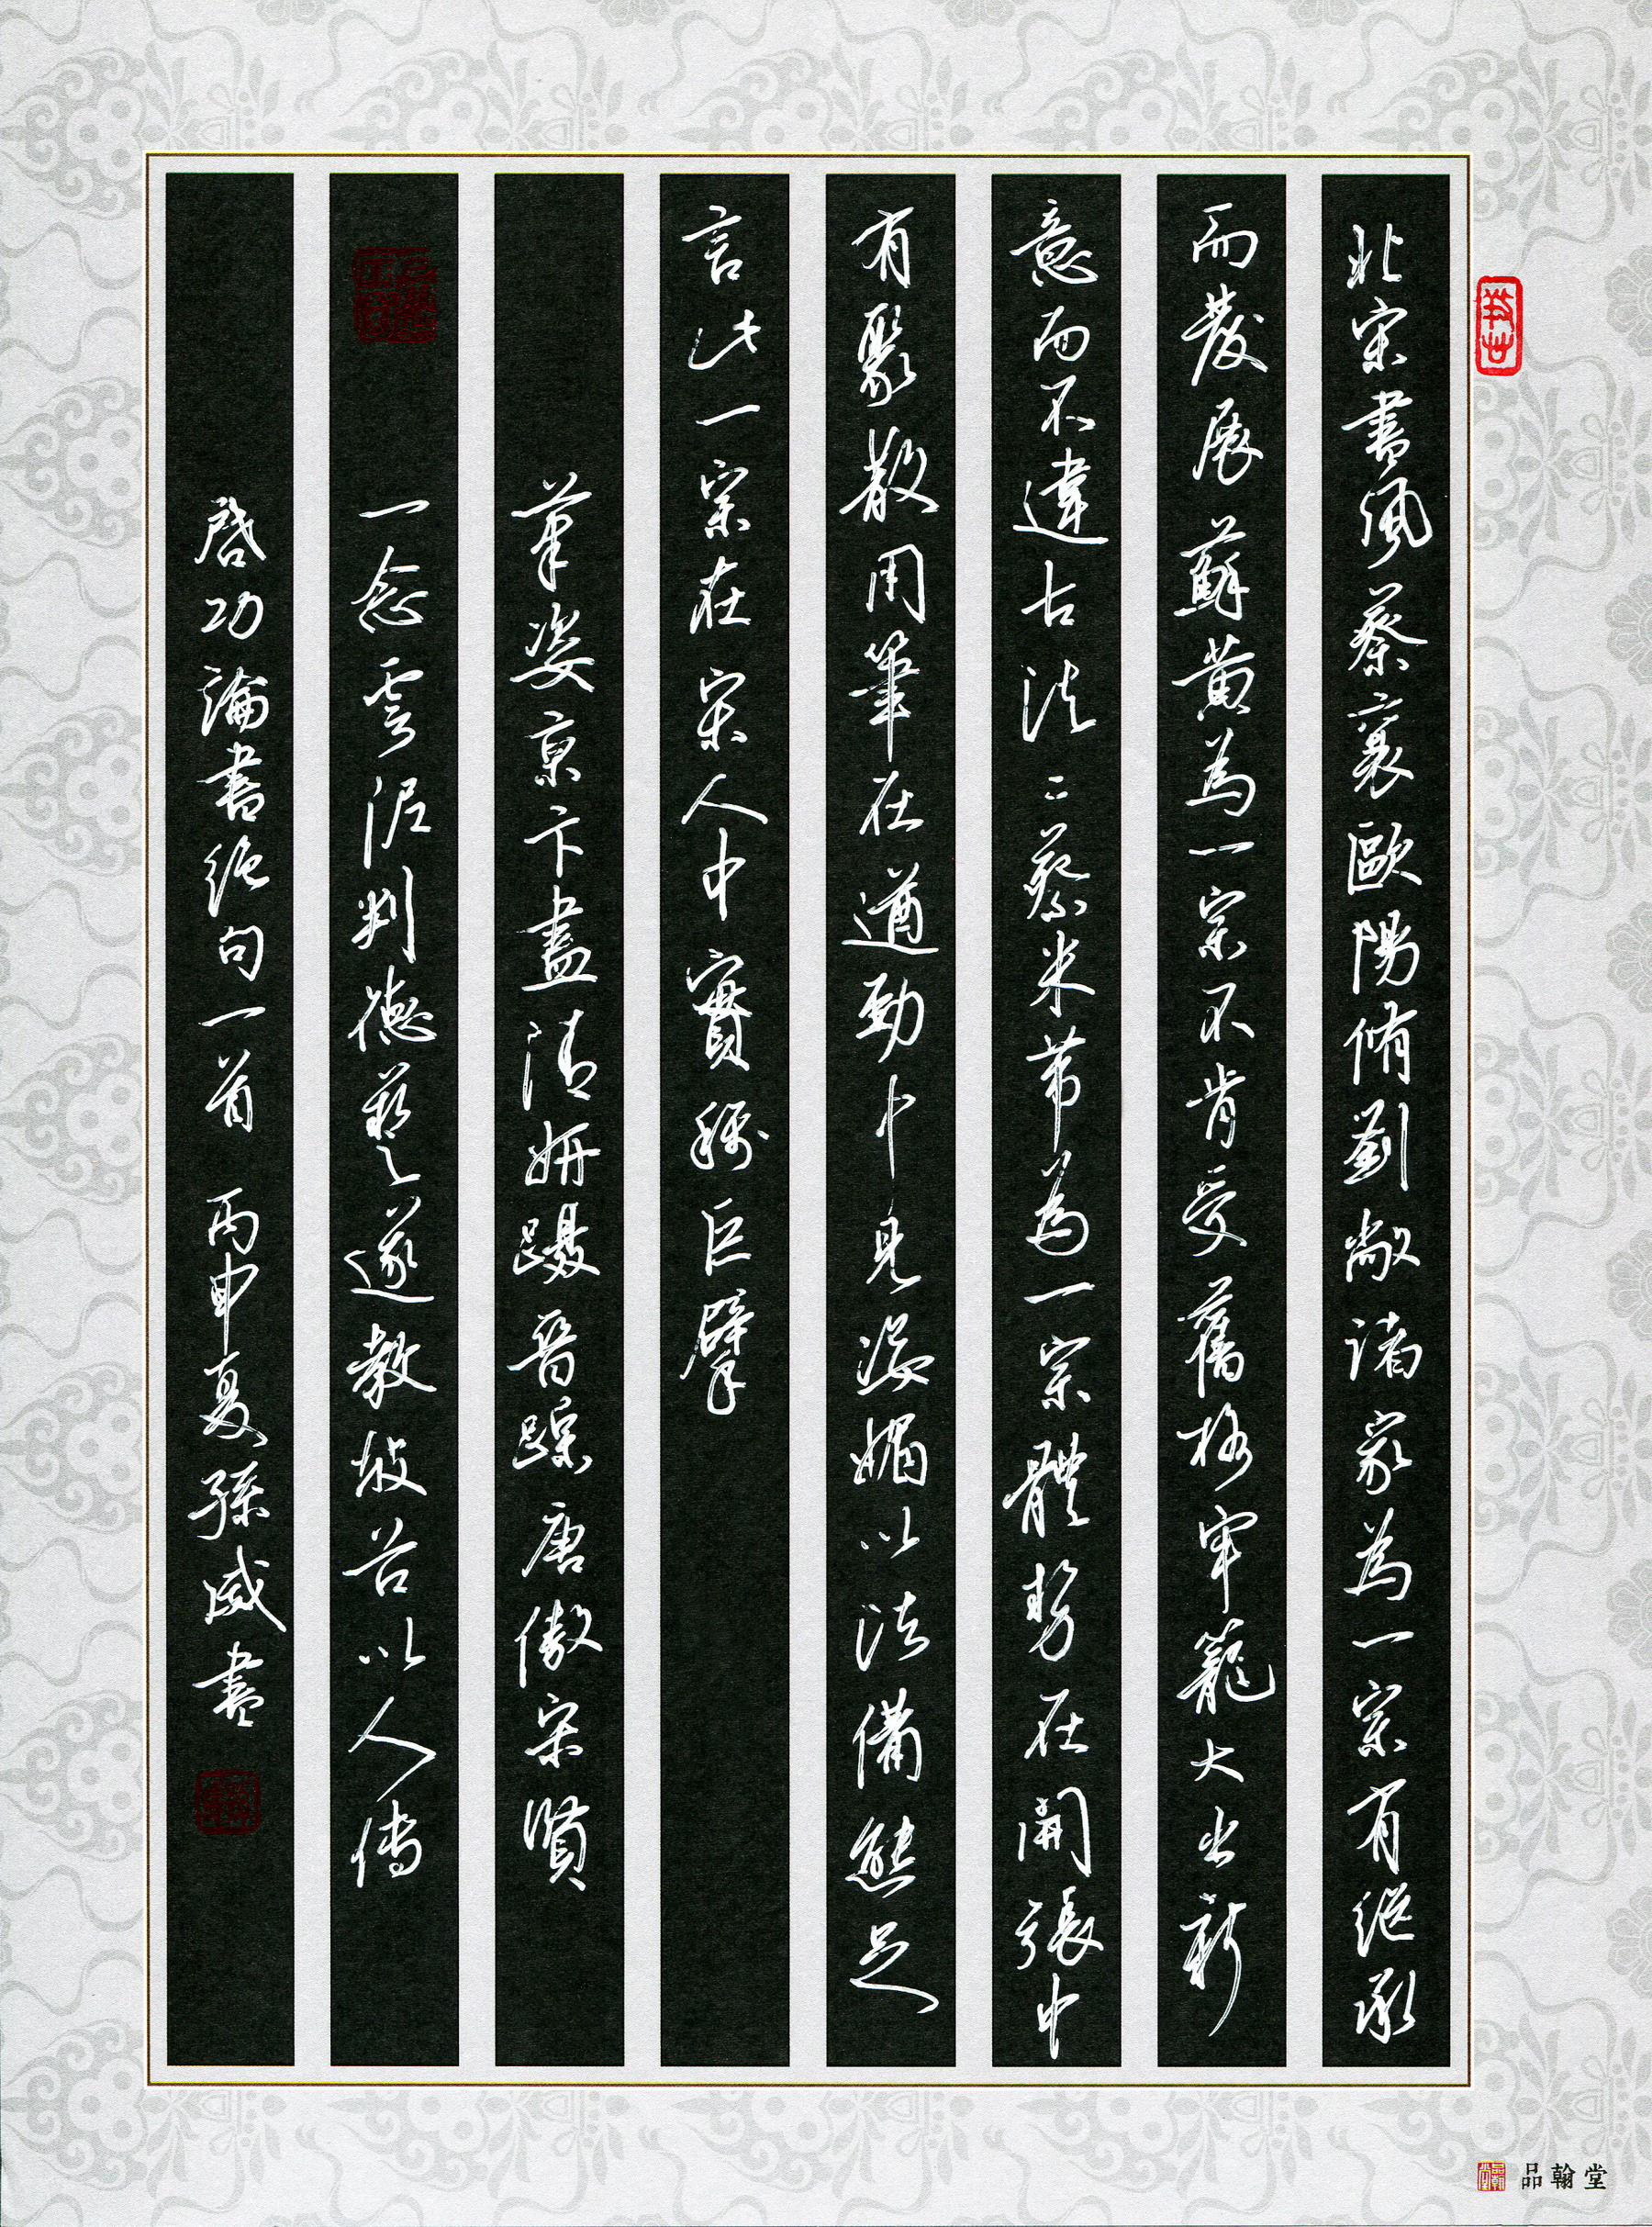 北宋書風蔡襄歐陽脩劉敞諸家為一宗有継承
而發展蘇黃為一宗不肯受舊格牢籠大出新
意而不違古法二蔡米芾為一宗體勢在開張中
有聚散用筆在遒勁中見姿媚以法備態足
言此一宗在宋人中實稱巨擘
筆姿京卞盡清妍躡晉踪唐傲宋賢
一念雲泥判德藝遂教坡谷以人傳
啓功論書绝句一首 丙申夏孫威書
品翰堂